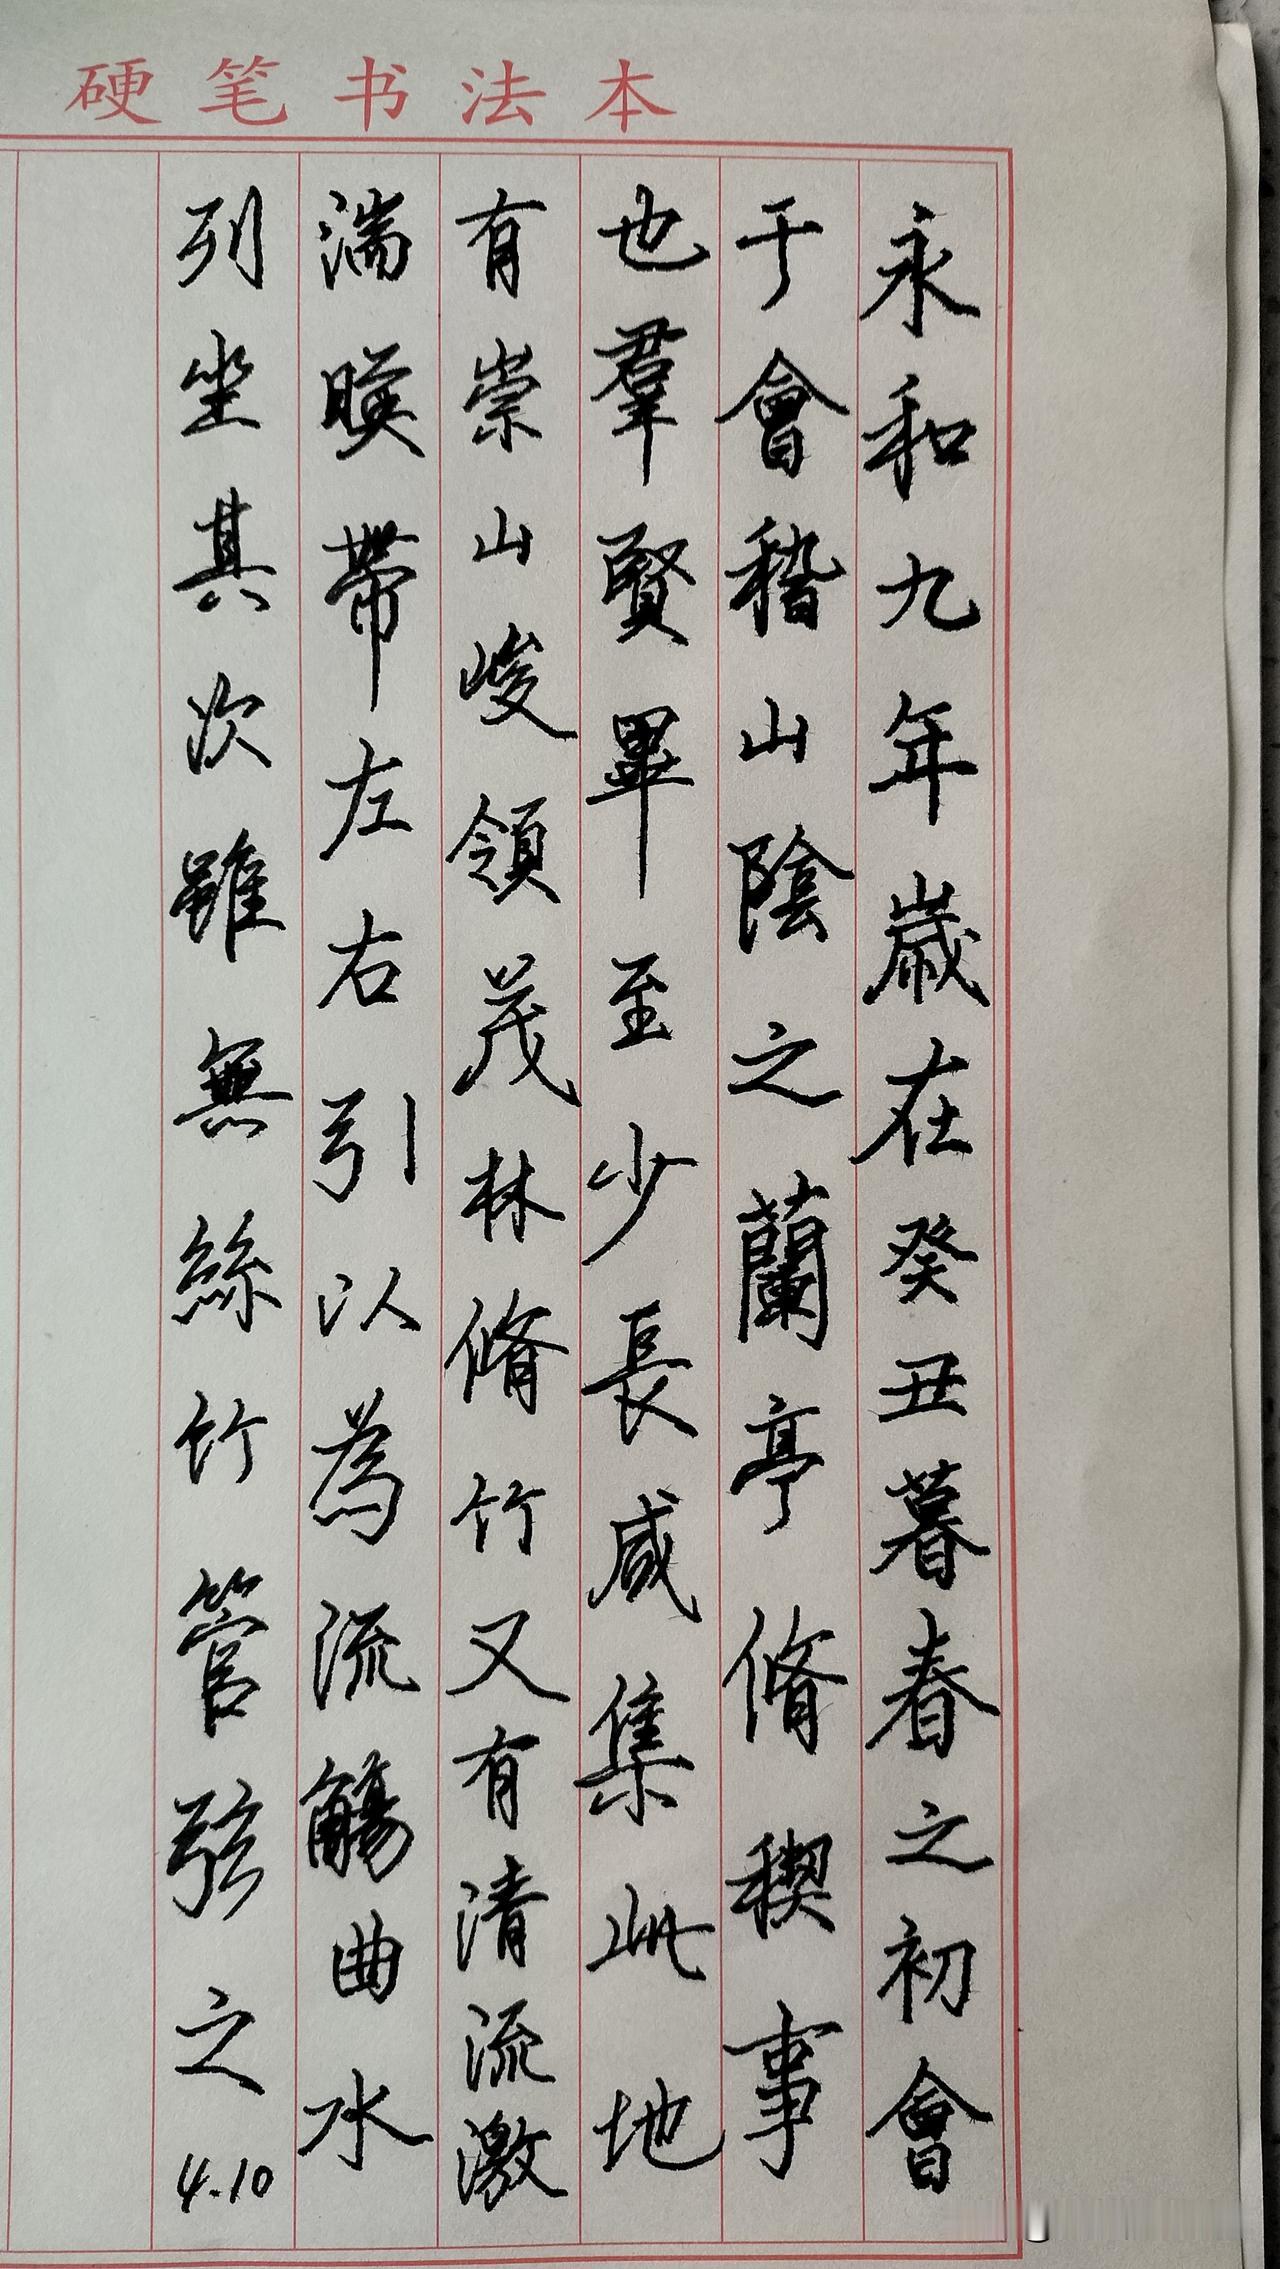 硬笔书法本
永和九年歲在癸丑暮春之初會
于會稽山陰之蘭亭脩稧事
也羣賢畢至少長咸集此地
有崇山峻領茂林脩竹又有清流激
湍暎帶左右引以為流觴曲水
列坐其次雖無絲竹管弦之
4.10